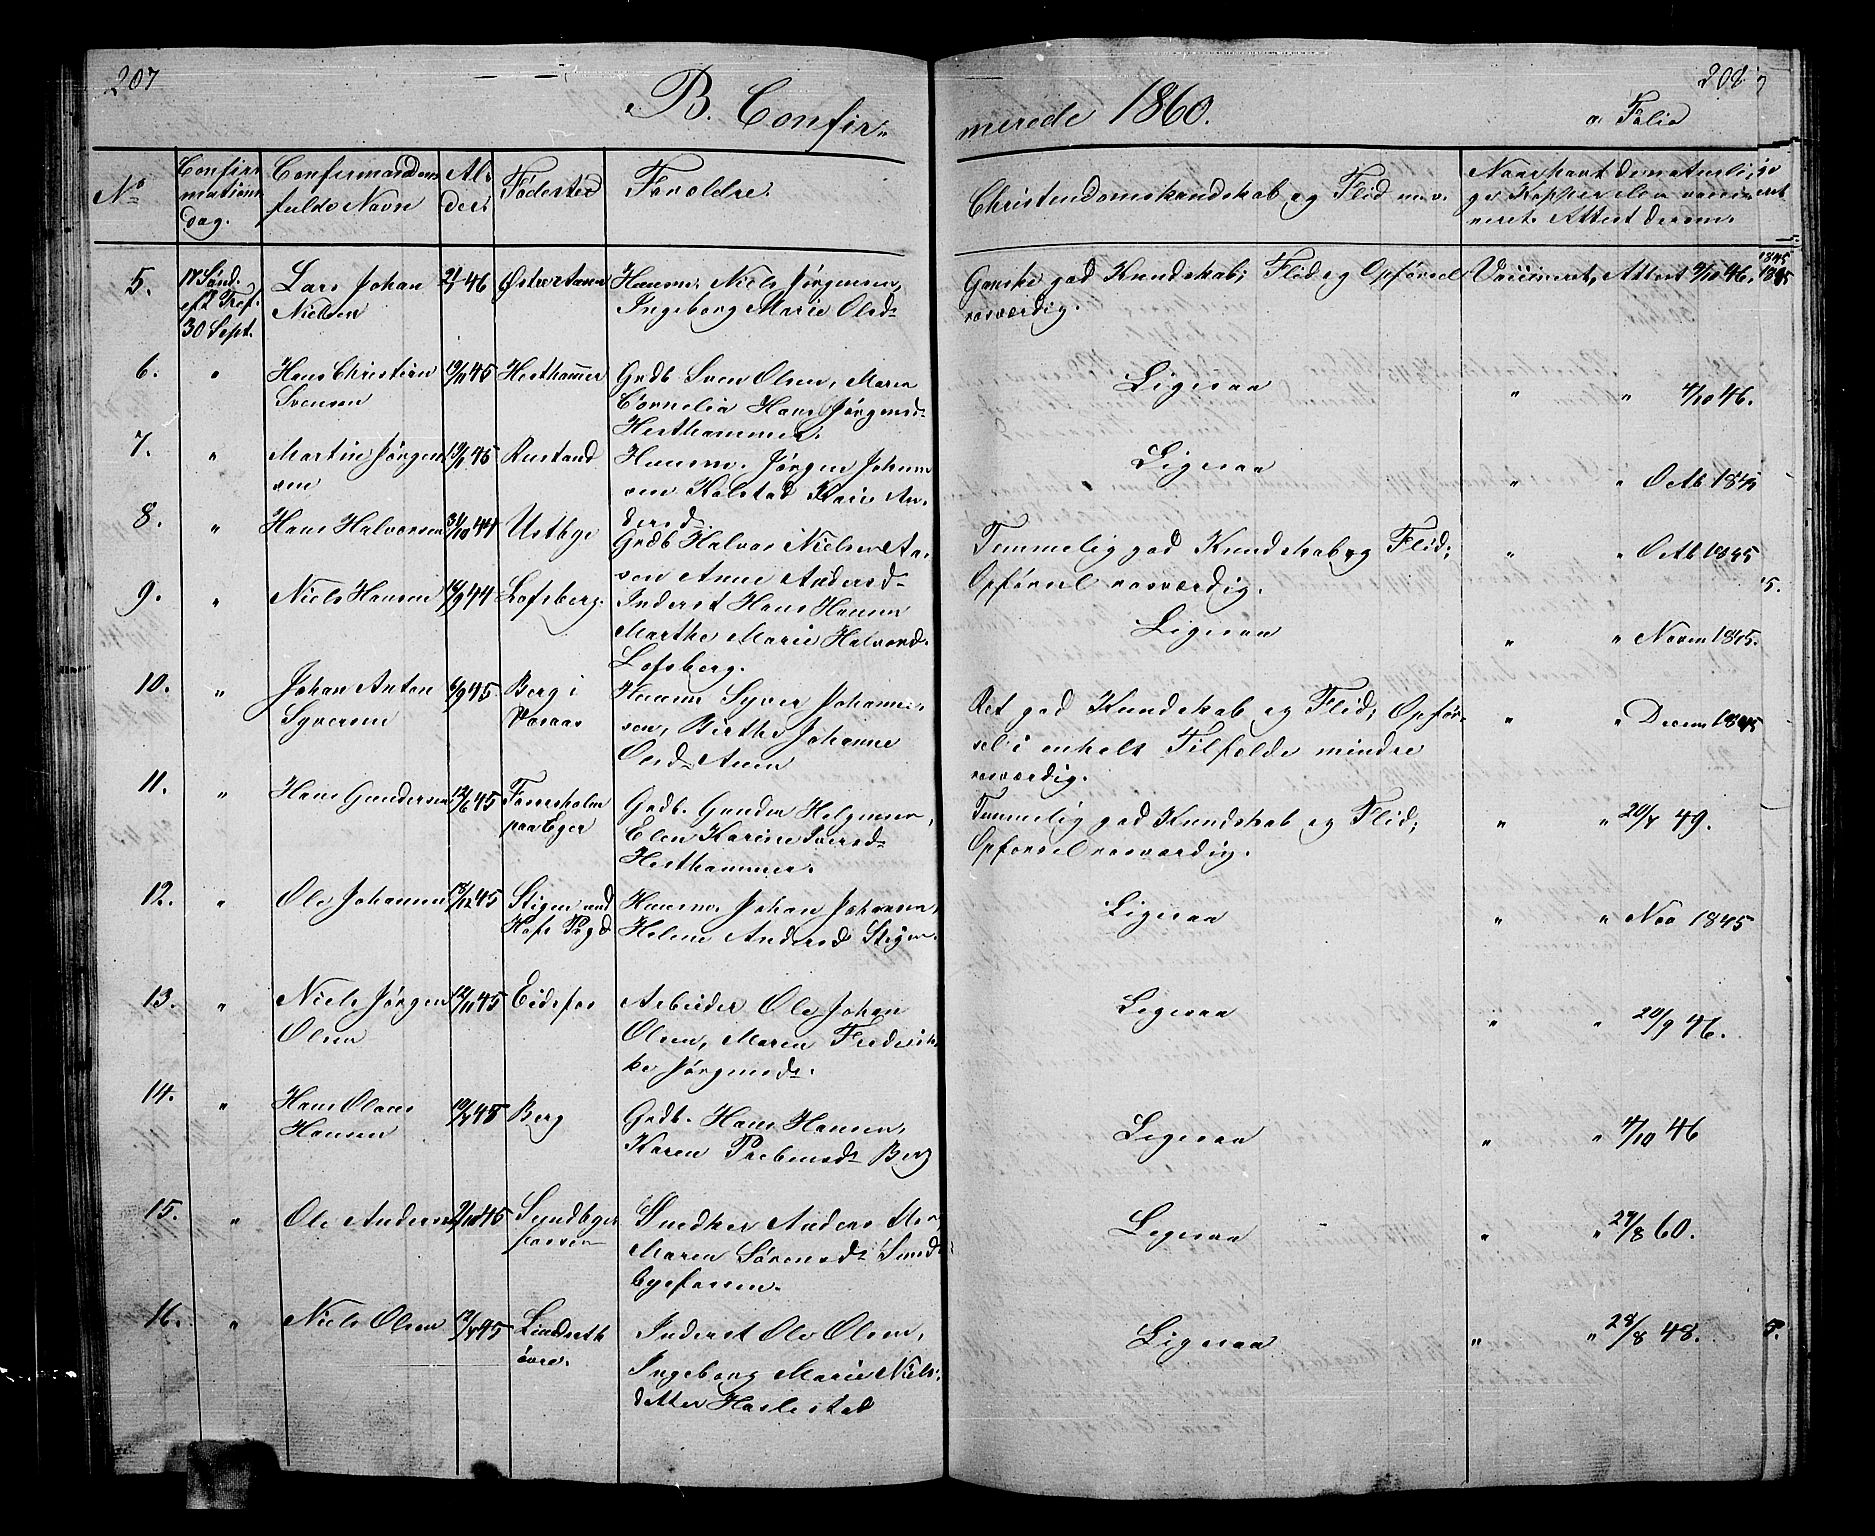 207
208
B. Confir=
merede 1860.
Folio
No
Confir=
mations
dag.
Confirmandens
fulde Navn
Al-
der.
Fødested
Forældre.
Christendomskundskab og Flid m. v.
Naar havt de naturli-
ge Kopper eller vacci-
neret. Attest derom.
5.
17 Sønd.
eft. Tref.
30 Sept.
Lars Johan
Nielsen
46
Huusm. Niels Jørgensen,
Ingeborg Marie Olsd.
Ganske god Kundskab; Flid og Opførsel
rosværdig.
Vaccineret, Attest 9/10 46.
6.
"
Hans Christian
Svensen
19/11 45
Hesthammer
Grdb. Sven Olsen, Maren
Cornelia Hans Jørgensd.
Hesthammer.
Ligesaa
" " 4/10 46.
7.
"
Martin Jørgen
sen
Rustand
Huusm. Jørgen Johann
sen Kolstad Kari An-
dersd.
Ligesaa
" " Octb 1845
8.
"
Hans Halvorsen
31/10 44
Ustbye
Grdb Halvor Nielsen Aa-
sen Anne Andersd.
Temmelig god Kundskab og Flid;
Opførsel rosværdig.
" " Octb 1845
9.
"
Niels Hansen
Lofsberg.
Inderst Hans Hansen
Marthe Marie Halvorsd.
Lofsberg.
Ligesaa
" " Novem 1845.
10.
"
Johan Anton
Syversen
6/9 45.
Berg i
Vaaas
Huusm Syver Johanne-
sen, Birthe Johanne
Olsd. Aasen
Ret god Kundskab og Flid; Opfør-
sel i enkelt Tilfælde mindre
rosværdig.
" " Decem 1845
11.
"
Hans Gundersen
12/6 45
Foersholm
paa Eger
Grdb. Gunder Helgesen,
Elen Karine Iversd.
Hesthammer.
Temmelig god Kundskab og Flid;
Opførsel rosværdig.
" " 20/8 49.
12.
"
Ole Johansen
18/12 45
Stigen ved
Hofs Prgd
Huusm. Johan Johansen,
Helene Andersd. Stigen.
Ligesaa
" " Nov 1845
13.
"
Niels Jørgen
Olsen
12/11 45
Eidsfos
Arbeider Ole Johan
Olsen, Maren Frederik-
ke Jørgensd.
Ligesaa
" " 20/9 46.
14.
"
Hans Olaus
Hansen
Berg
Grdb. Hans Hansen,
Karen Prebensd. Berg
Ligesaa
" " 4/10 46
15.
"
Ole Andersen
9/10 45
Sundbye
fossen
Snedker Anders
Maren Sørensd. Sund-
byefossen.
Ligesaa
" " 27/8 60.
16.
"
Niels Olsen
Lindseth
øvre.
Inderst Ole Olsen,
Ingeborg Marie Niels-
datter Haslestad
Ligesaa
" " 28/8 48.
5.